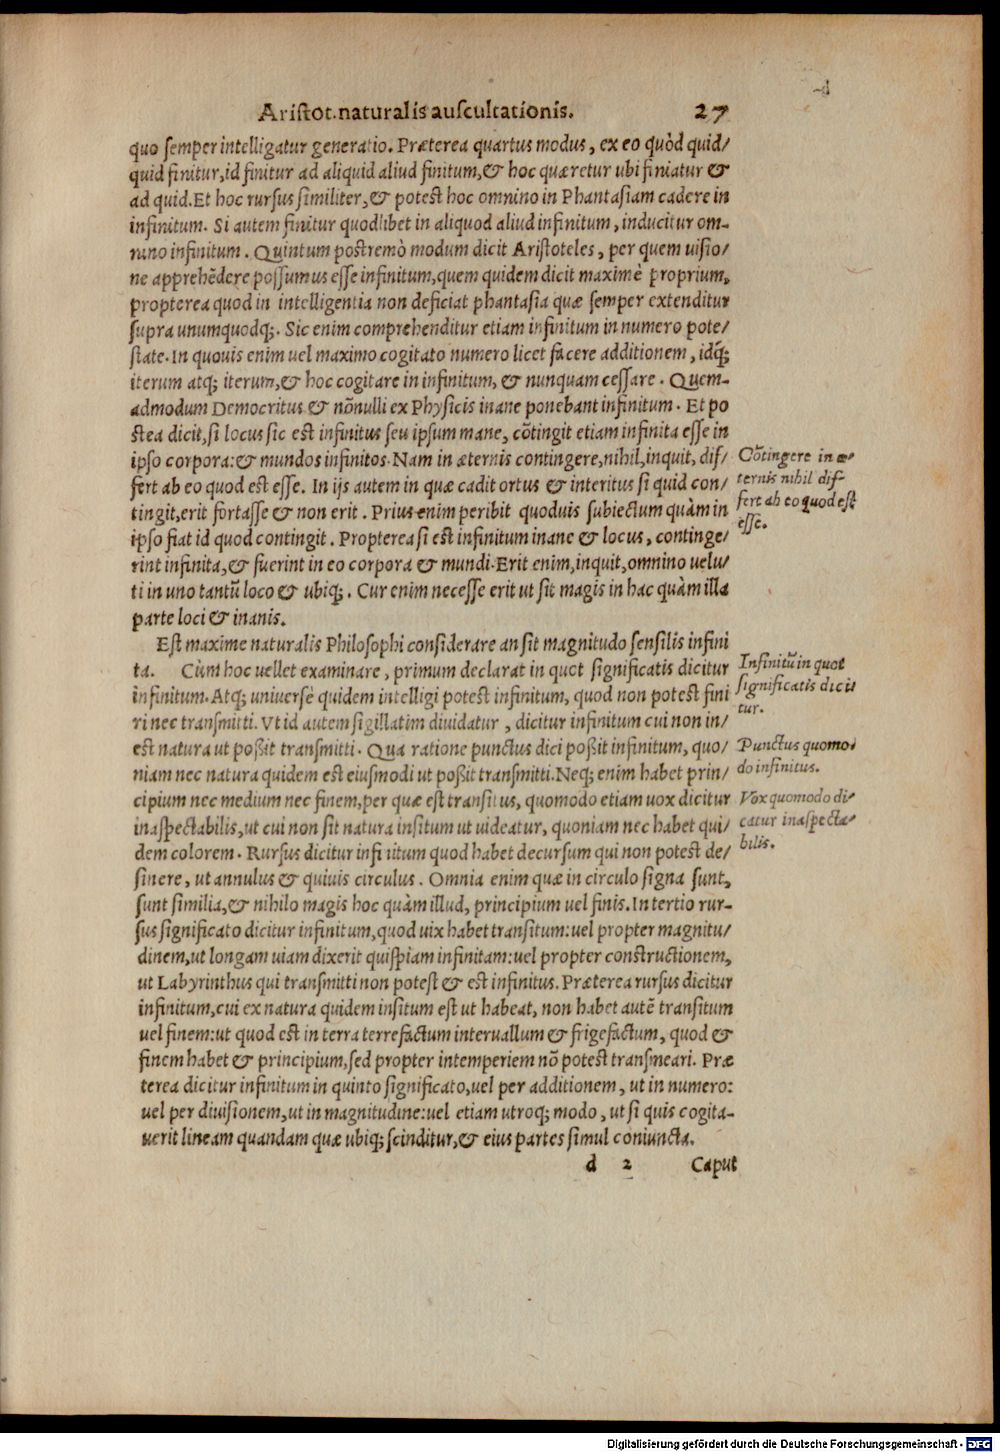 Aristot. naturalis auscultationis. 27
quo semper intelligatur generatio. Præterea quartus modus, ex eo quòd quid/
quid finitur, id finitur ad aliquid aliud finitum, & hoc quæretur ubi finiatur &
ad quid. Et hoc rursus similiter, & potest hoc omnino in Phantasiam cadere in
infinitum. Si autem finitur quodlibet in aliquod aliud infinitum, inducitur om-
nino infinitum. Quintum postremò modum dicit Aristoteles, per quem uisio/
ne apprehẽdere possumus esse infinitum, quem quidem dicit maximè proprium,
propterea quod in intelligentia non deficiat phantasia quæ semper extenditur
supra unumquodq;. Sic enim comprehenditur etiam infinitum in numero pote/
state. In quouis enim uel maximo cogitato numero licet facere additionem, idq́;
iterum atq; iterum, & hoc cogitare in infinitum, & nunquam cessare. Quem-
admodum Democritus & nõnulli ex Physicis inane ponebant infinitum. Et po
stea dicit, si locus sic est infinitus seu ipsum mane, cõtingit etiam infinita esse in
ipso corpora: & mundos infinitos. Nam in æternis contingere, nihil, inquit, dif/
fert ab eo quod est esse. In ijs autem in quæ cadit ortus & interitus si quid con/
tingit, erit fortasse & non erit. Prius enim peribit quoduis subiectum quàm in
ipso fiat id quod contingit. Propterea si est infinitum inane & locus, continge/
rint infinita, & fuerint in eo corpora & mundi. Erit enim, inquit, omnino uelu/
ti in uno tantũ loco & ubiq;. Cur enim necesse erit ut sit magis in hac quàm illa
parte loci & inanis.
Cõtingere in æ-
ternis nihil dif-
fert ab eo quod est
esse.
Est maxime naturalis Philosophi considerare an sit magnitudo sensilis infini
ta. Cùm hoc uellet examinare, primum declarat in quot significatis dicitur
infinitum. Atq; uniuersè quidem intelligi potest infinitum, quod non potest fini
ri nec transmitti. Vt id autem sigillatim diuidatur, dicitur infinitum cui non in/
est natura ut poßit transmitti. Qua ratione punctus dici poßit infinitum, quo/
niam nec natura quidem est eiusmodi ut poßit transmitti. Neq; enim habet prin/
cipium nec medium nec finem, per quæ est transitus, quomodo etiam uox dicitur
inaspectabilis, ut cui non sit natura insitum ut uideatur, quoniam nec habet qui/
dem colorem. Rursus dicitur infinitum quod habet decursum qui non potest de/
sinere, ut annulus & quiuis circulus. Omnia enim quæ in circulo signa sunt,
sunt similia, & nihilo magis hoc quàm illud, principium uel finis. In tertio rur-
sus significato dicitur infinitum, quod uix habet transitum: uel propter magnitu/
dinem, ut longam uiam dixerit quispiam infinitam: uel propter constructionem,
ut Labyrinthus qui transmitti non potest & est infinitus. Præterea rursus dicitur
infinitum, cui ex natura quidem insitum est ut habeat, non habet autẽ transitum
uel finem: ut quod est in terra terrefactum interuallum & frigefactum, quod &
finem habet & principium, sed propter intemperiem nõ potest transmeari. Præ
terea dicitur infinitum in quinto significato, uel per additionem, ut in numero:
uel per diuisionem, ut in magnitudine: uel etiam utroq; modo, ut si quis cogita-
uerit lineam quandam quæ ubiq; scinditur, & eius partes simul coniuncta.
Infinitũ in quot
significatis dici
tur.
Punctus quomo-
do infinitus.
Vox quomodo di-
catur inaspecta-
bilis.
d 2 Caput
Digitalisierung gefördert durch die Deutsche Forschungsgemeinschaft - DFG